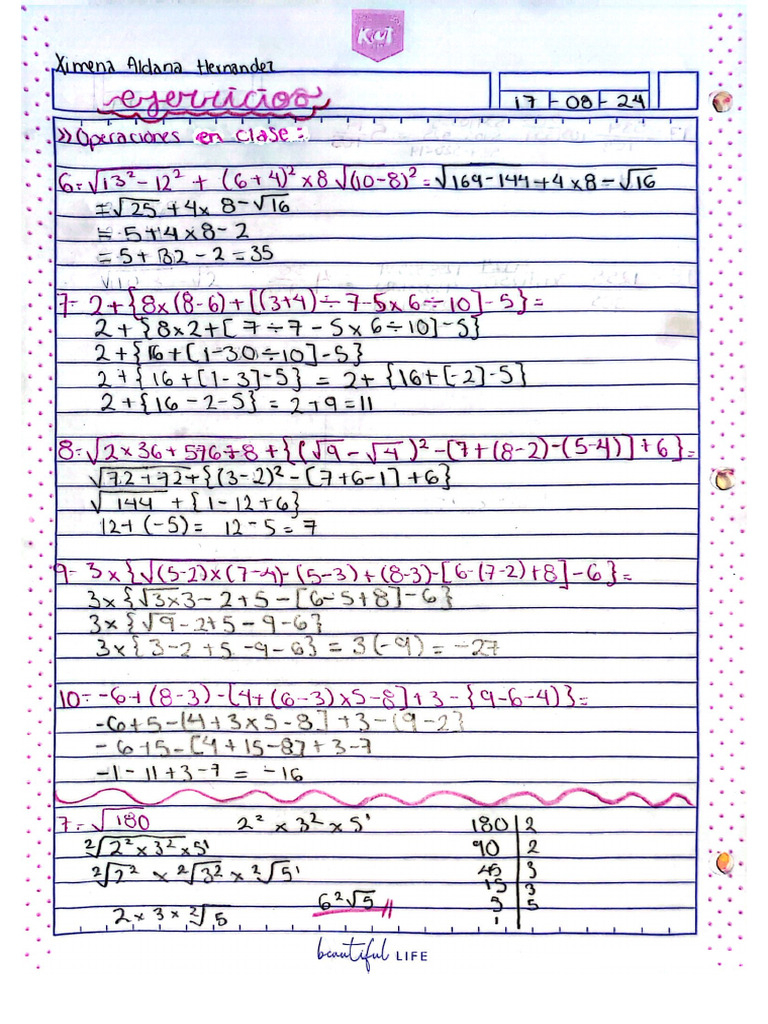 Kat
Ximena Aldana Hernandez
ejercicios
17 - 08 - 24
>> Operaciones en clase:
6= √13² - 12² + (6+4)² × 8 √(10-8)² = √169-144 + 4×8 - √16
= √25 + 4× 8 - √16
= 5+4×8-2
= 5+32-2=35
7= 2+{8×(8-6)+[(3+4)÷7-5×6÷10]-5}=
2+{8×2+[7÷7-5×6÷10]-5}
2+{16+[1-30÷10]-5}
2+{16+[1-3]-5} = 2+{16+[-2]-5}
2+{16-2-5} = 2+9=11
8= √2×36+576÷8+{(√9-√4)²-[7+(8-2)-(5-4)]+6}=
√72+72+{(3-2)²-[7+6-1]+6}
√144+{1-12+6}
12+(-5)= 12-5=7
9= 3×{√(5-2)×(7-4)-(5-3)+(8-3)-[6-(7-2)+8]-6}=
3×{√3×3-2+5-[6-5+8]-6}
3×{√9-2+5-9-6}
3×{3-2+5-9-6} = 3(-9) = -27
10= -6+(8-3)-[4+(6-3)×5-8]+3-{9-6-4)}=
-6+5-[4+3×5-8]+3-(9-2}
-6+5-[4+15-8]+3-7
-1-11+3-7= -16
7= √180 2² × 3² × 5¹ 180 | 2
²√2²×3²×5¹ 90 | 2
²√2² × ²√3² × ²√5¹ 45 | 3
15 | 3
6²√5 5 | 5
2×3×²√5 1
beautiful LIFE